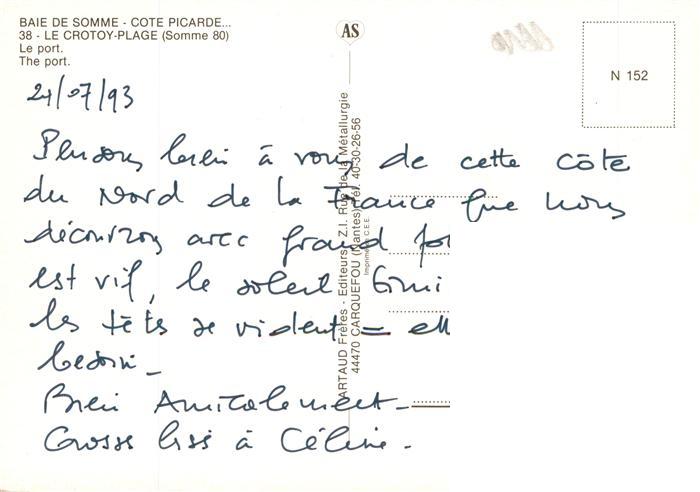 BAIE DE SOMME - COTE PICARDE...
38 - LE CROTOY-PLAGE (Somme 80)
Le port.
The port.
AS
N 152
ARTAUD Frères - Editeurs - Z.I. Rue de la Métallurgie
44470 CARQUEFOU (Nantes) Tél. 40-30-26-56
Imprimé C.E.E.
21/07/93
Pensons bien à vous de cette côte
du Nord de la France que nous
découvrons avec grand
est vif, le soleil
les têtes se vident =
besoin _
Bien Amicalement _
Grosse bise à Céline .